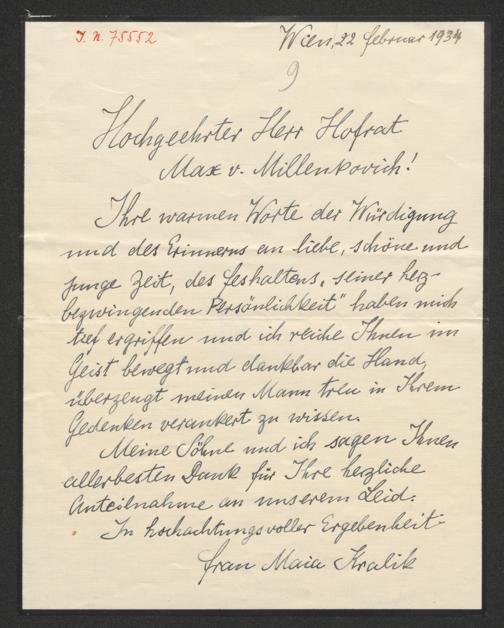 J. N. 75552
Wien, 22 februar 1934
9
Hochgeehrter Herr Hofrat
Max v. Millenkovich!
Ihre warmen Worte der Würdigung
und des Erinnerns an liebe, schöne und
junge Zeit, des feshaltens „seiner herz-
bezwingenden Persönlichkeit" haben mich
tief ergriffen und ich reiche Ihnen im
Geist bewegt und dankbar die Hand,
überzeugt meinen Mann treu in Ihrem
Gedenken verankert zu wissen.
Meine Söhne und ich sagen Ihnen
allerbesten Dank für Ihre herzliche
Anteilnahme an unserem Leid.
In hochachtungsvoller Ergebenheit
frau Maia Kralik